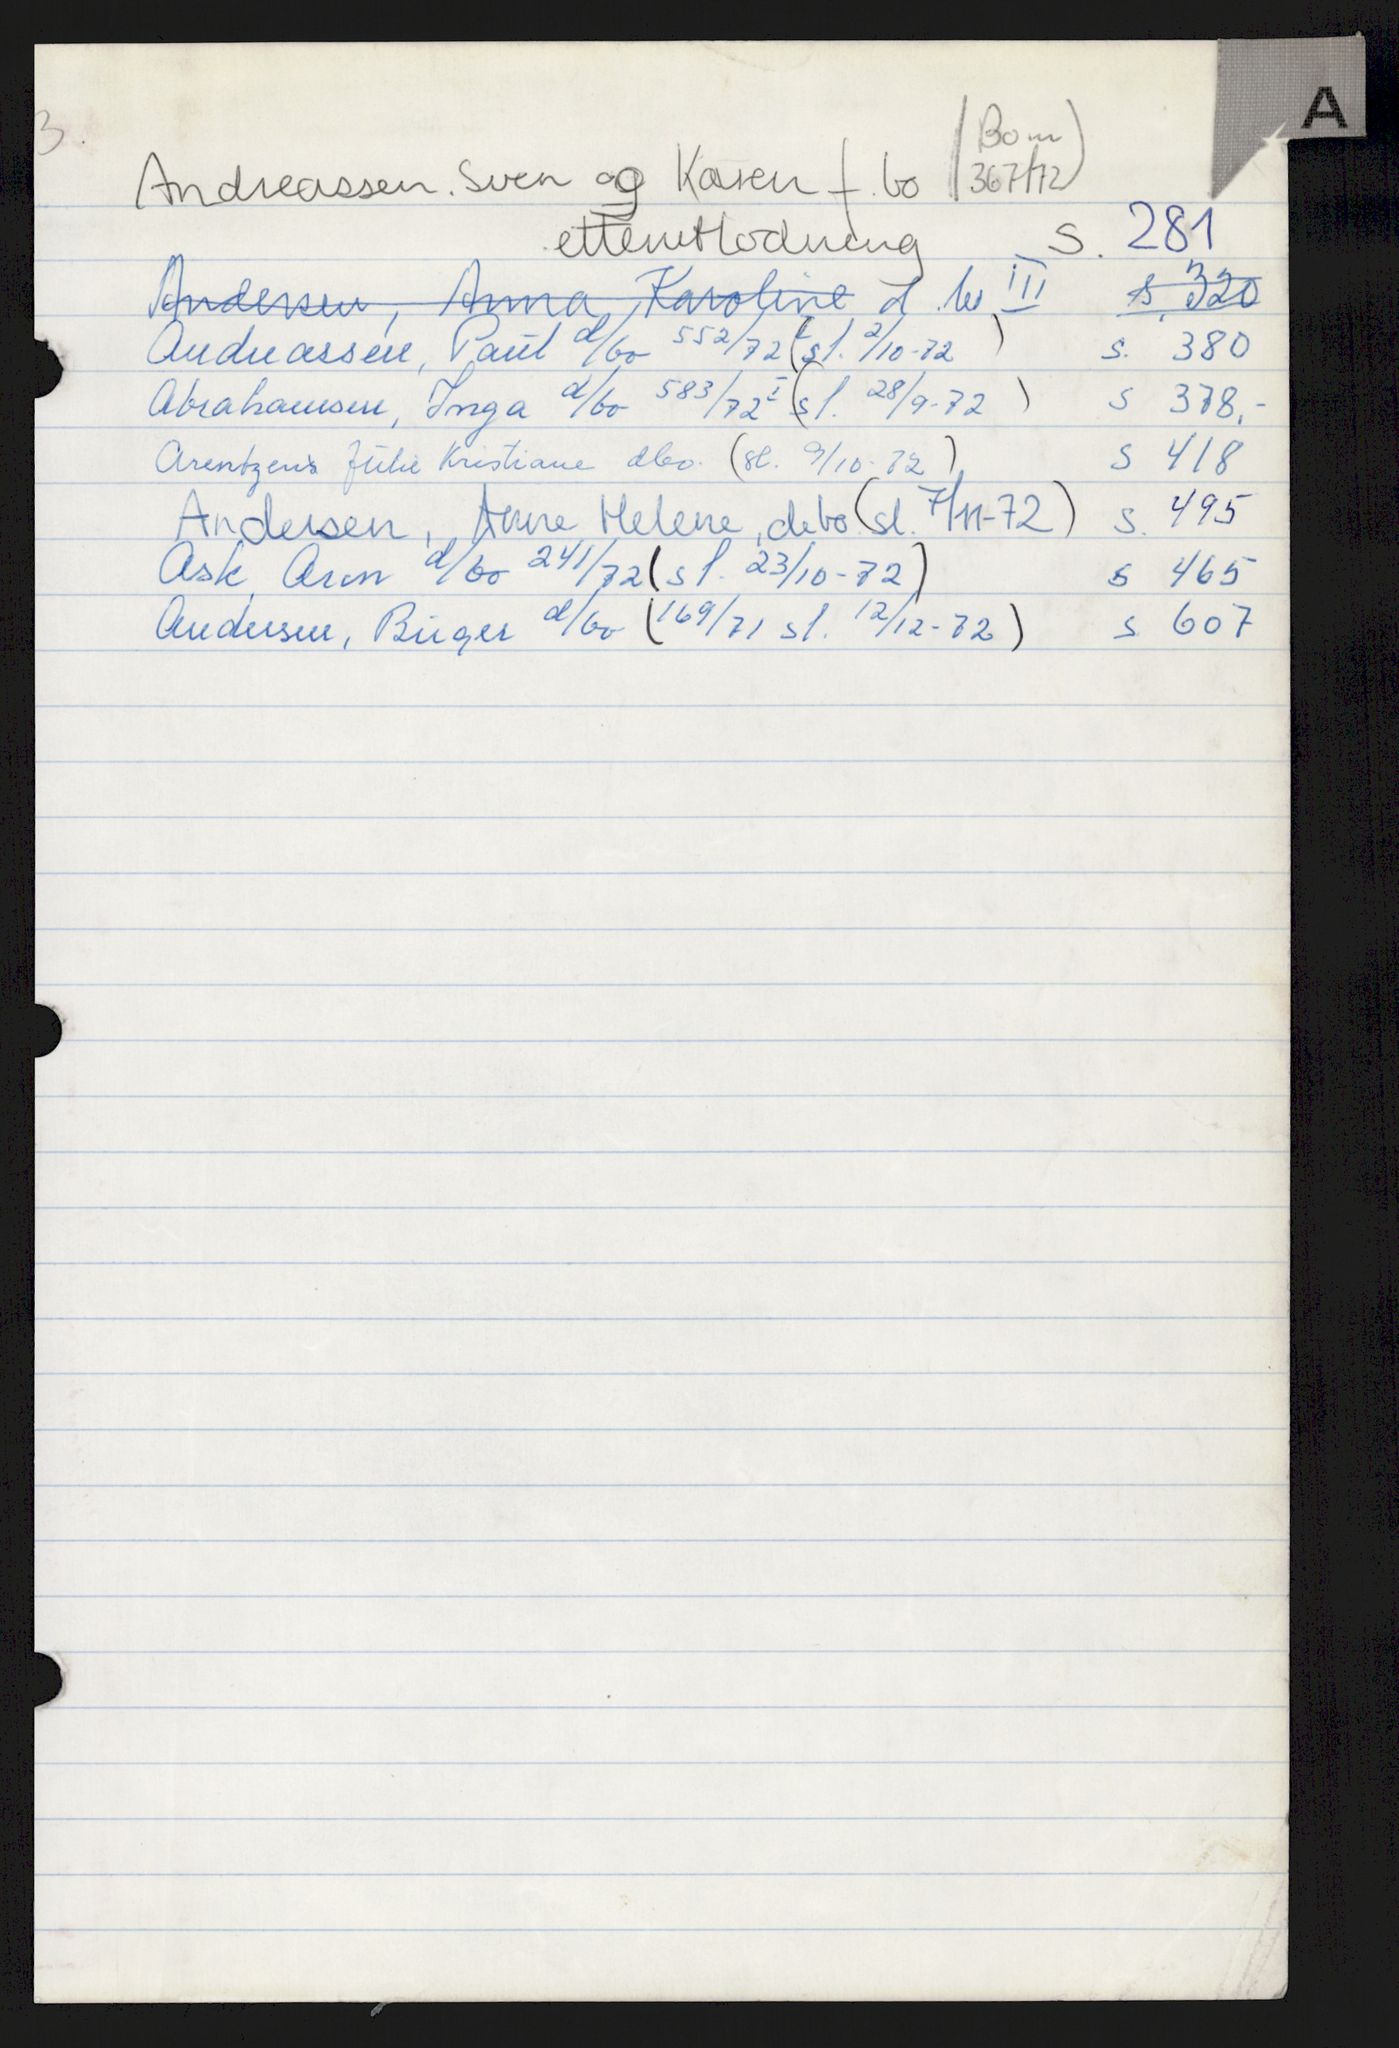 A
3.
Andreassen. Sven og Karen f. bo (Bo nr 367/72)
etterutlodning s. 281
Andersen, Anna Karoline d. bo III s. 320
Andreassen, Paul d/bo 552/72 I (sl. 2/10-72) s. 380
Abrahamsen, Inga d/bo 583/72 I (sl. 28/9-72) s 378,-
Arentzen's Julie Kristiane dbo. (sl. 9/10-72) s 418
Andersen, Anne Helene, debo (sl. 7/11-72) s. 495
Ask, Arvn d/bo 241/72 (sl. 23/10-72) s 465
Andersen, Birger d/bo (169/71 sl. 12/12-72) s 607